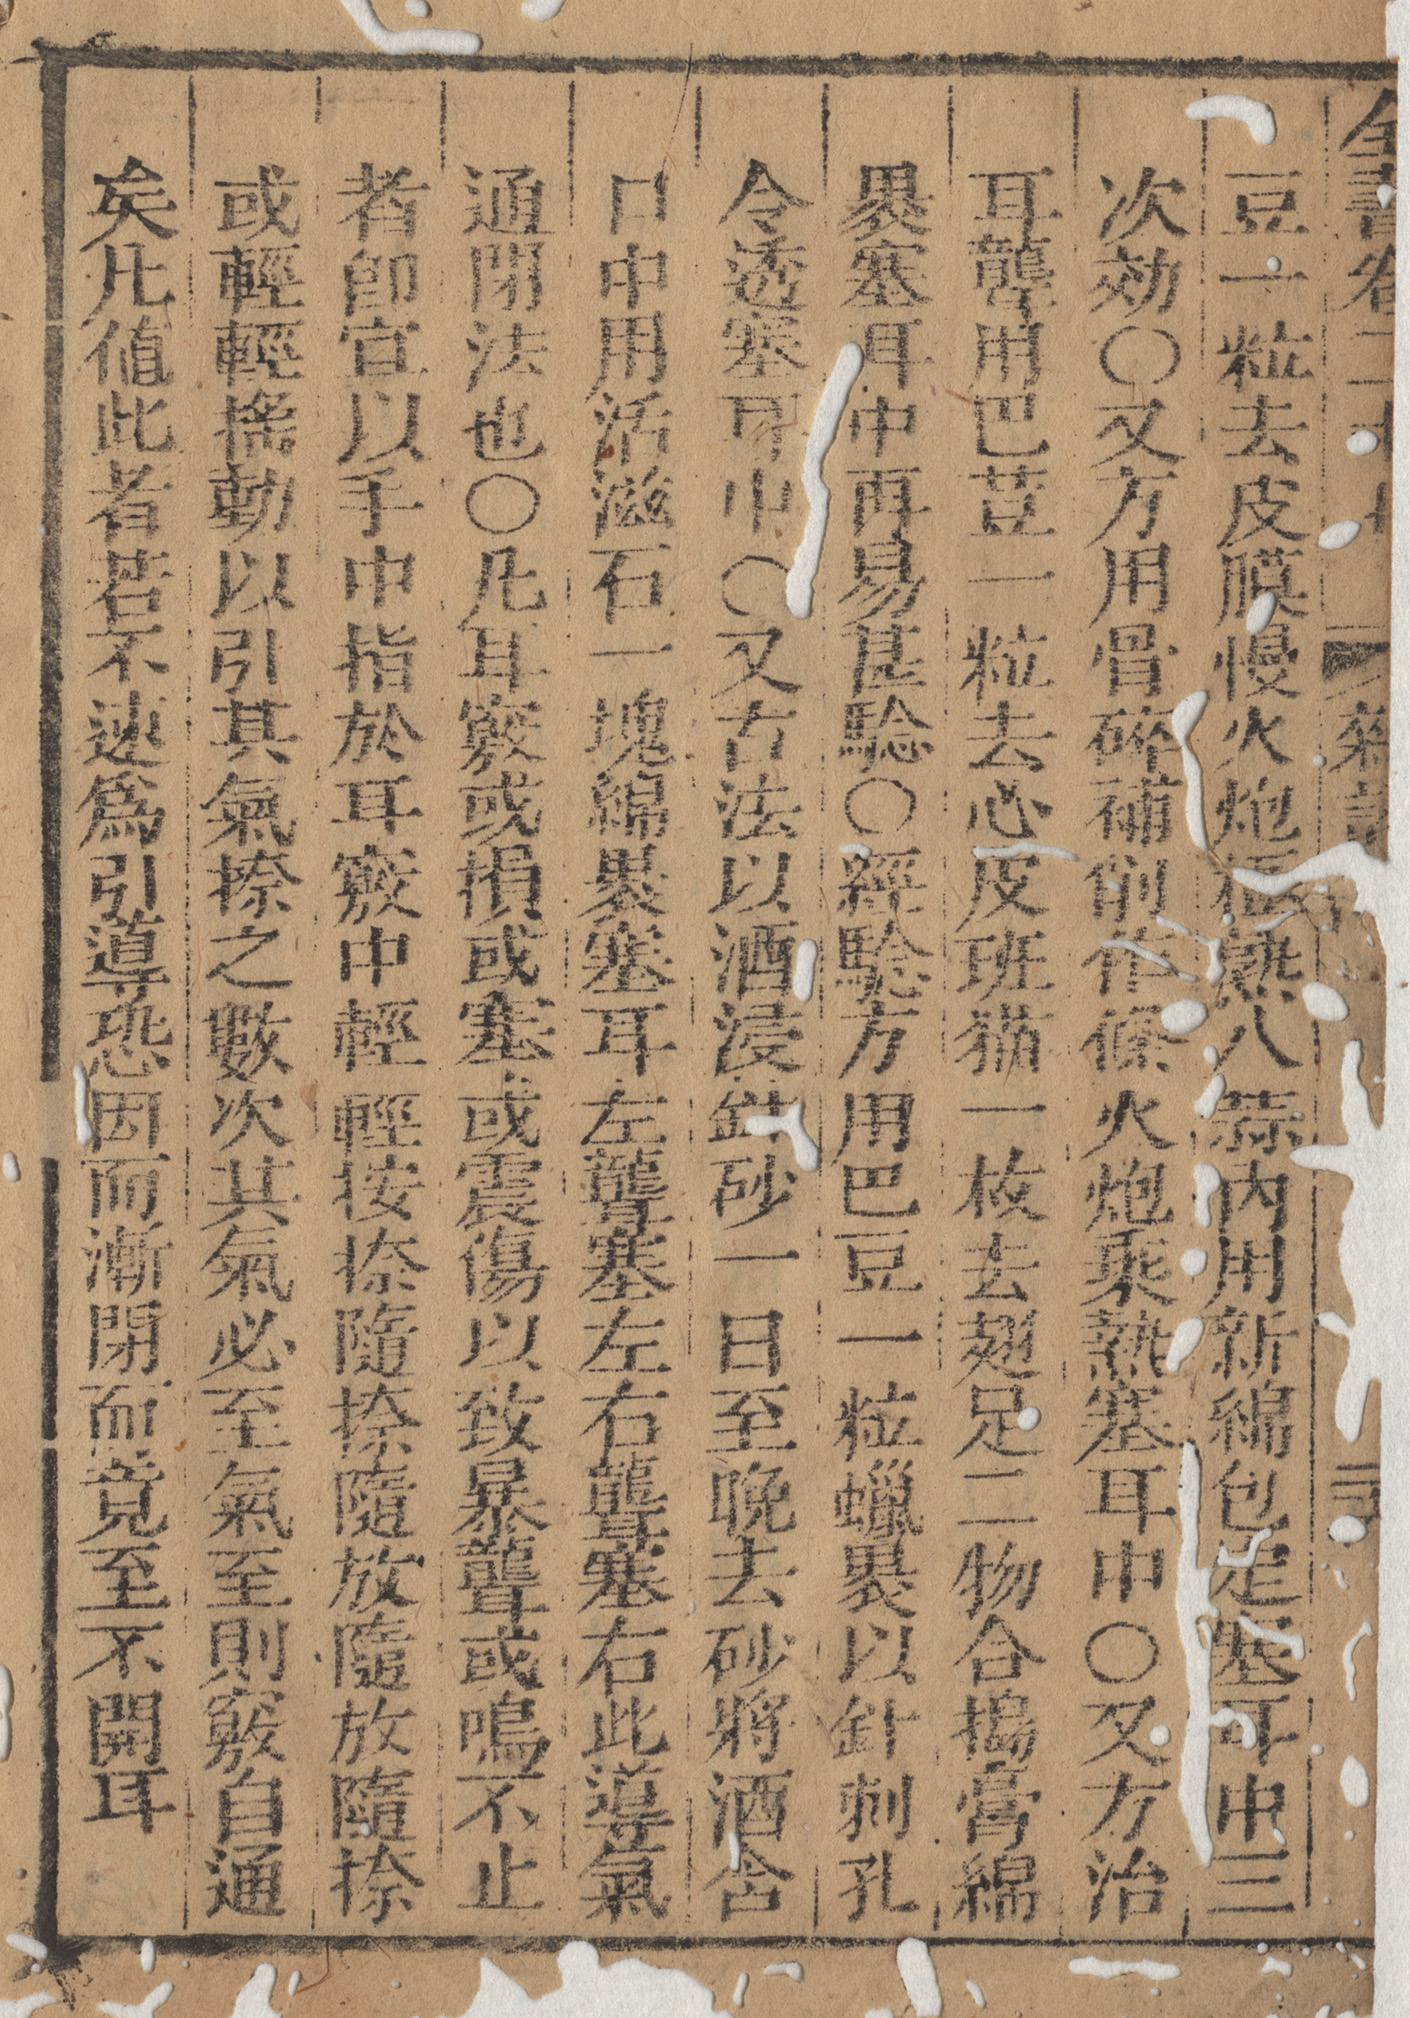 全書卷二十七 雜證
豆一粒去皮膜慢火炮極熱入蒜內用新綿包定塞耳中三
次効○又方用骨碎補削作條火炮乘熱塞耳中○又方治
耳聾用巴荳一粒去心皮班猫一枚去翅足二物合搗膏綿
褁塞耳中再易甚騐○經騐方用巴豆一粒蠟褁以針刺孔
令透塞耳中○又古法以酒浸針砂一日至晚去砂將酒含
口中用活滋石一塊綿褁塞耳左聾塞左右聾塞右此導氣
通閉法也○凡耳竅或損或塞或震傷以致暴聾或鳴不止
者卽宜以手中指於耳竅中輕輕按捺隨捺隨放隨放隨捺
或輕輕搖動以引其氣捺之數次其氣必至氣至則竅自通
矣凡值此者若不速爲引導恐因而漸閉而竟至不開耳